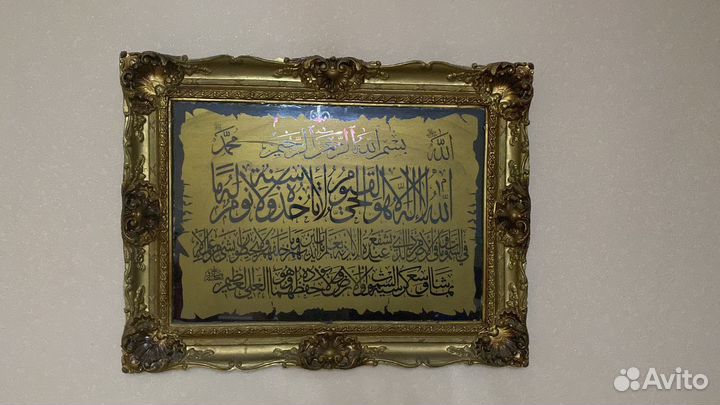 الله بسم الله الرحمن الرحيم محمد
الله لا إله إلا هو الحي القيوم لا تأخذه سنة ولا نوم له ما
في السموات وما في الأرض من ذا الذي يشفع عنده إلا بإذنه يعلم ما بين أيديهم وما خلفهم ولا يحيطون بشيء من علمه إلا
بما شاء وسع كرسيه السموات والأرض ولا يؤده حفظهما وهو العلي العظيم
Avito